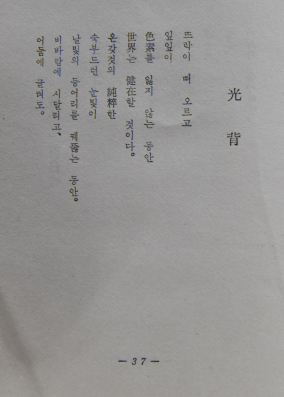 光背
뜨락이 떠 오르고
잎잎이
色素를 잃지 않는 동안
世界는 健在할 것이다。
온갖것의 純粹한
숙부드런 눈빛이
날빛의 등어리를 꿰뚫는 동안。
비바람에 시달리고、
어둠에 굴려도。
— 37 —